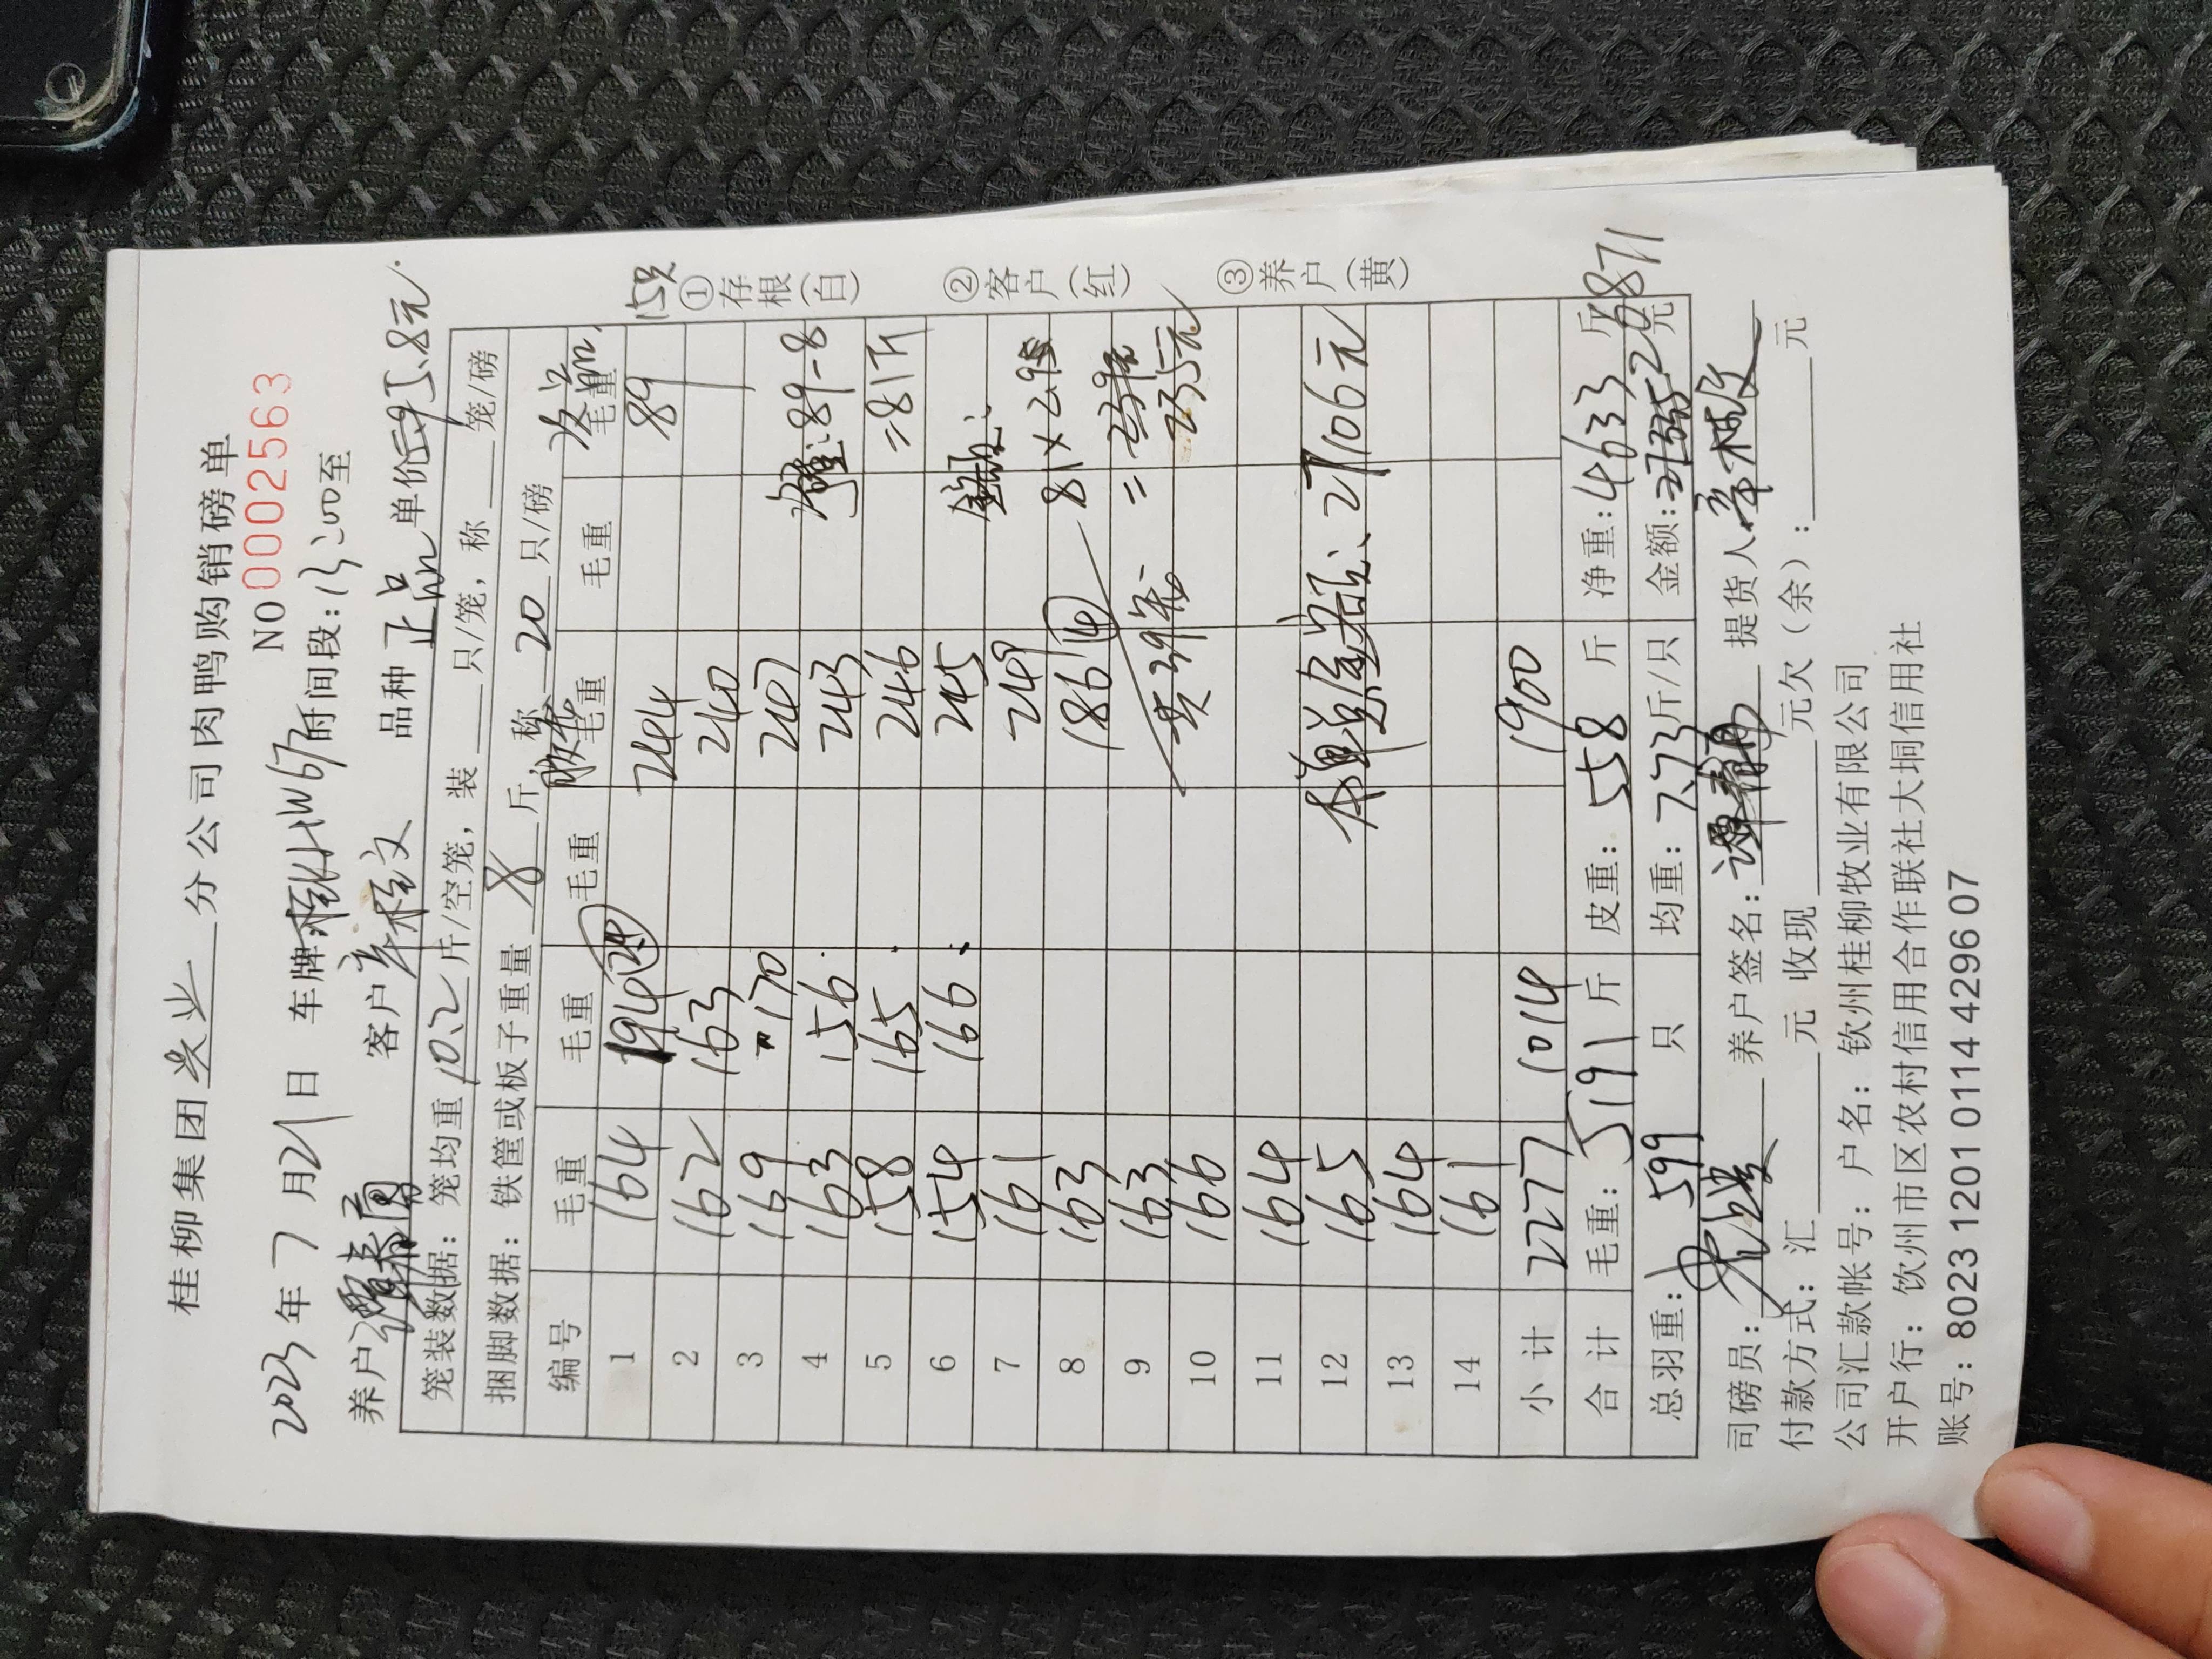 桂柳集团 分公司肉鸭购销磅单
NO 0002563
2023年7月21日 车牌: 时间段:13:00至
养户 客户 品种 正品 单价 5.8元
笼装数据:笼均重 10.2 斤/空笼,装 只/笼,称 笼/磅
捆脚数据:铁筐或板子重量 8 斤,称 20 只/磅
编号 毛重 毛重 毛重 毛重 毛重 毛重
1 164 194 244 89 15只
2 162 163 240
3 169 170 247
4 163 156 243 :89-8
5 158 165 246 =81斤
6 154 166 245
7 161 249
8 163 186 81×2.9
9 163 =
10 166 235元
11 164
12 165 27106元
13 164
14 161
小计 2277 1014 1900
合计 毛重:5191斤 皮重:558斤 净重:4633斤
总羽重:599只 均重:7.73斤/只 金额: 26871元
司磅员: 养户签名:谭 提货人
付款方式:汇 元 收现 元欠(余): 元
公司汇款帐号:户名:钦州桂柳牧业有限公司
开户行:钦州市区农村信用合作联社大垌信用社
账号:8023 1201 0114 4296 07
①存根(白) ②客户(红) ③养户(黄)